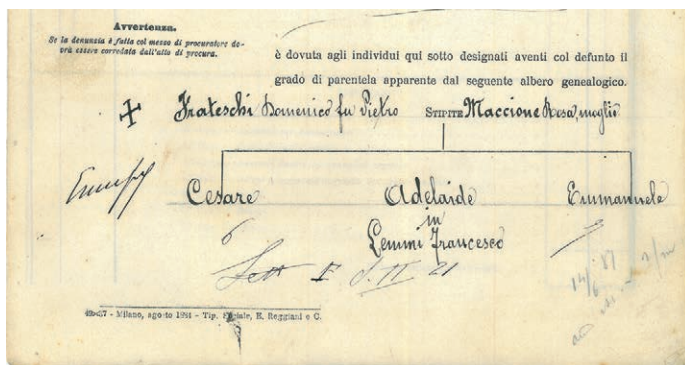 Avvertenza.
Se la denunzia è fatta col mezzo di procuratore do-
vrà essere corredata dall'atto di procura.
è dovuta agli individui qui sotto designati aventi col defunto il
grado di parentela apparente dal seguente albero genealogico.
Frateschi Domenico fu Pietro STIPITE Maccione Rosa, moglie
Cesare Adelaide Emmanuele
in
Lemmi Francesco
6
- Milano, agosto 1884 - Tip. E. Reggiani e C.